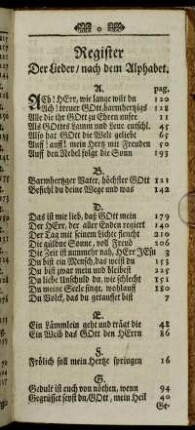 Register
Der Lieder / nach dem Alphabet.
A. pag.
Ach! HErr, wie lange wilt du 120
Ach! treuer GOtt, barmhertzigs 128
Alle die ihr GOtt zu Ehren unser 11
Als GOttes Lamm und Leue entschl. 45
Also hat GOtt die Welt geliebt 65
Auff! auff! mein Hertz mit Freuden 50
Auff den Nebel folgt die Sonn 193
B.
Barmhertziger Vater, höchster GOtt 121
Befiehl du deine Wege und was 142
D.
Das ist mir lieb, daß GOtt mein 179
Der HErr, der aller Enden regiert 140
Der Tag mit seinem Lichte fleucht 210
Die güldne Sonne, voll Freud 106
Die Zeit ist nunmehr nah, HErr JEsu 3
Du bist ein Mensch, das weist du 153
Du bist zwar mein und bleibest 225
Du liebe Unschuld du, wie schlecht 151
Du meine Seele singe, wohlauff 210
Du Volck, das du getauffet bist 7
E.
Ein Lämmlein geht und trägt die 48
Ein Weib das GOtt den HErrn 86
F.
Frölich soll mein Hertze springen 16
G.
Gedult ist euch von nöthen, wenn 94
Gegrüsset seyst du, GOtt, mein Heil 40
Ge-